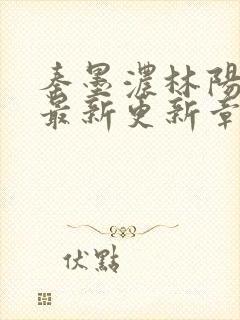 秦墨濃林陽
最新更新章
伏點